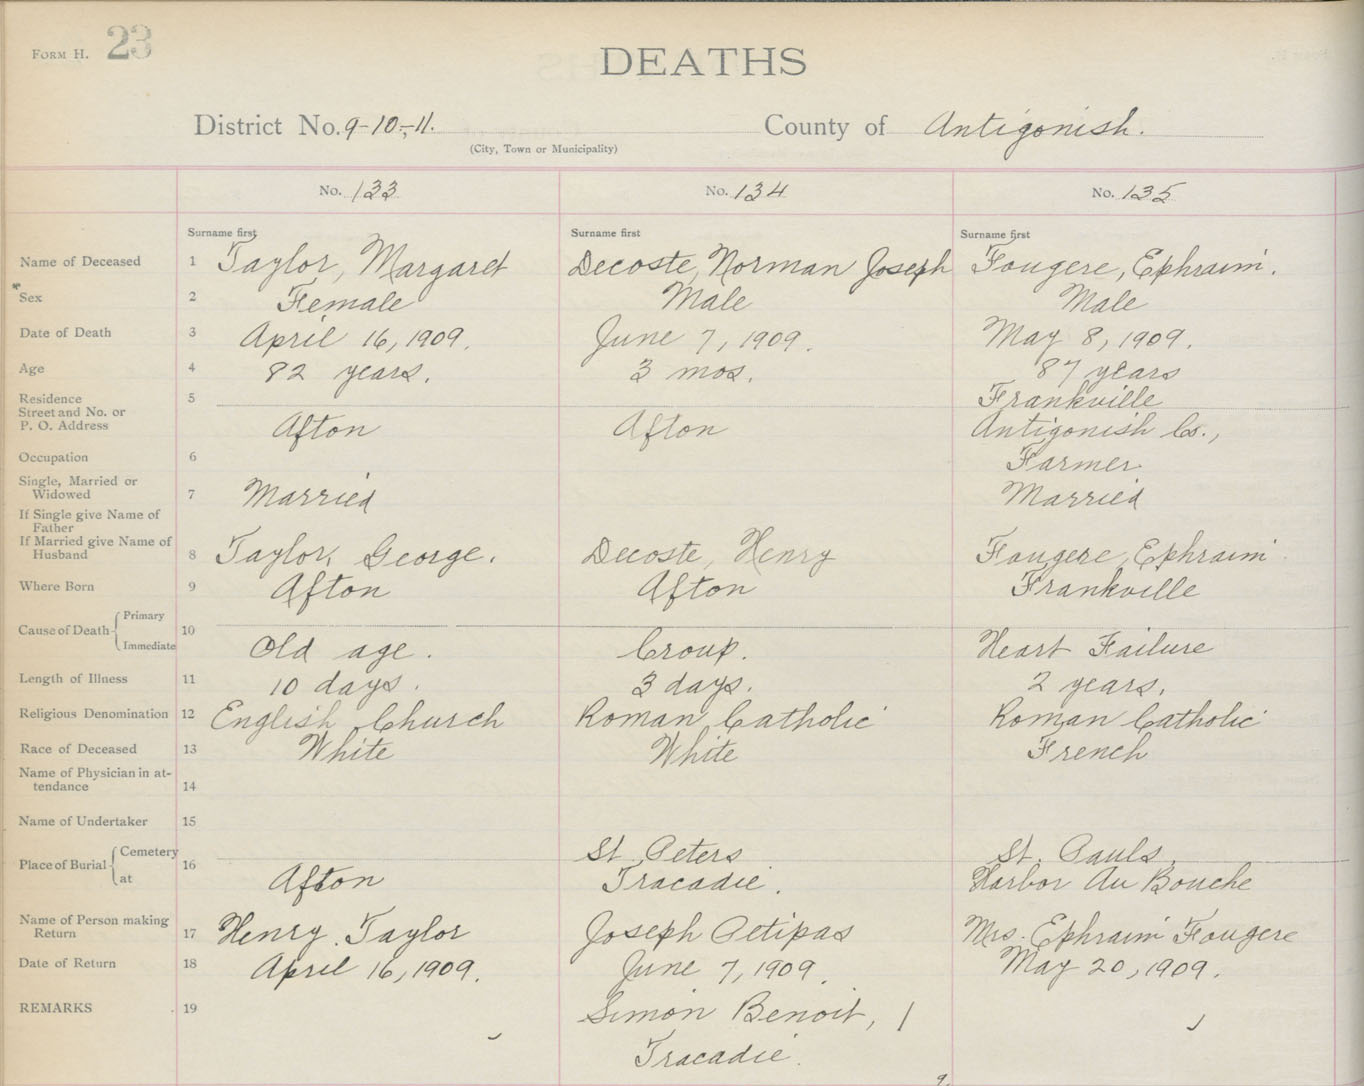 FORM H. 23
DEATHS
District No. 9-10-,-11. County of Antigonish.
(City, Town or Municipality)
No. 133 No. 134 No. 135
Surname first Surname first Surname first
Name of Deceased 1 Taylor, Margaret Decoste, Norman Joseph Fougere, Ephraim.
Sex 2 Female Male Male
Date of Death 3 April 16, 1909. June 7, 1909. May 8, 1909.
Age 4 82 years. 3 mos. 87 years
Residence 5 Frankville
Street and No. or
P. O. Address Afton Afton Antigonish Co.,
Occupation 6 Farmer
Single, Married or
Widowed 7 Married Married
If Single give Name of
Father
If Married give Name of
Husband 8 Taylor, George. Decoste, Henry Fougere, Ephraim
Where Born 9 Afton Afton Frankville
Cause of Death { Primary 10
Immediate Old age. Croup. Heart Failure
Length of Illness 11 10 days. 3 days. 2 years.
Religious Denomination 12 English Church Roman Catholic Roman Catholic
Race of Deceased 13 White White French
Name of Physician in at-
tendance 14
Name of Undertaker 15
Place of Burial { Cemetery 16 St. Peters St. Pauls,
at Afton Tracadie. Harbor Au Bouche
Name of Person making
Return 17 Henry Taylor Joseph Petipas Mrs. Ephraim Fougere
Date of Return 18 April 16, 1909. June 7, 1909. May 20, 1909.
REMARKS 19 Simon Benoit, 1
Tracadie.
9.